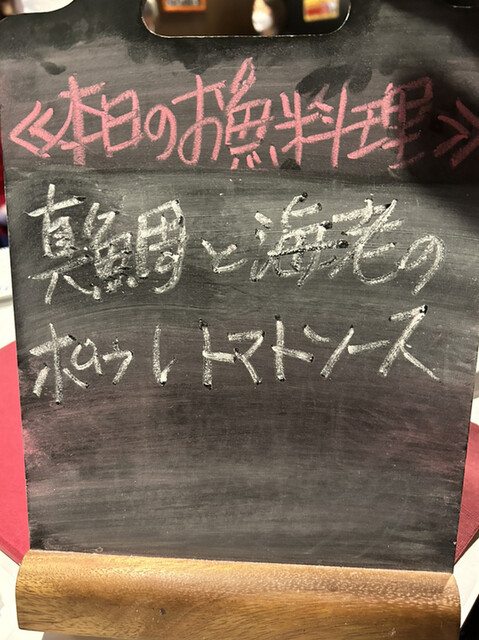 ≪本日のお魚料理≫
真鯛と海老の
ポワレトマトソース